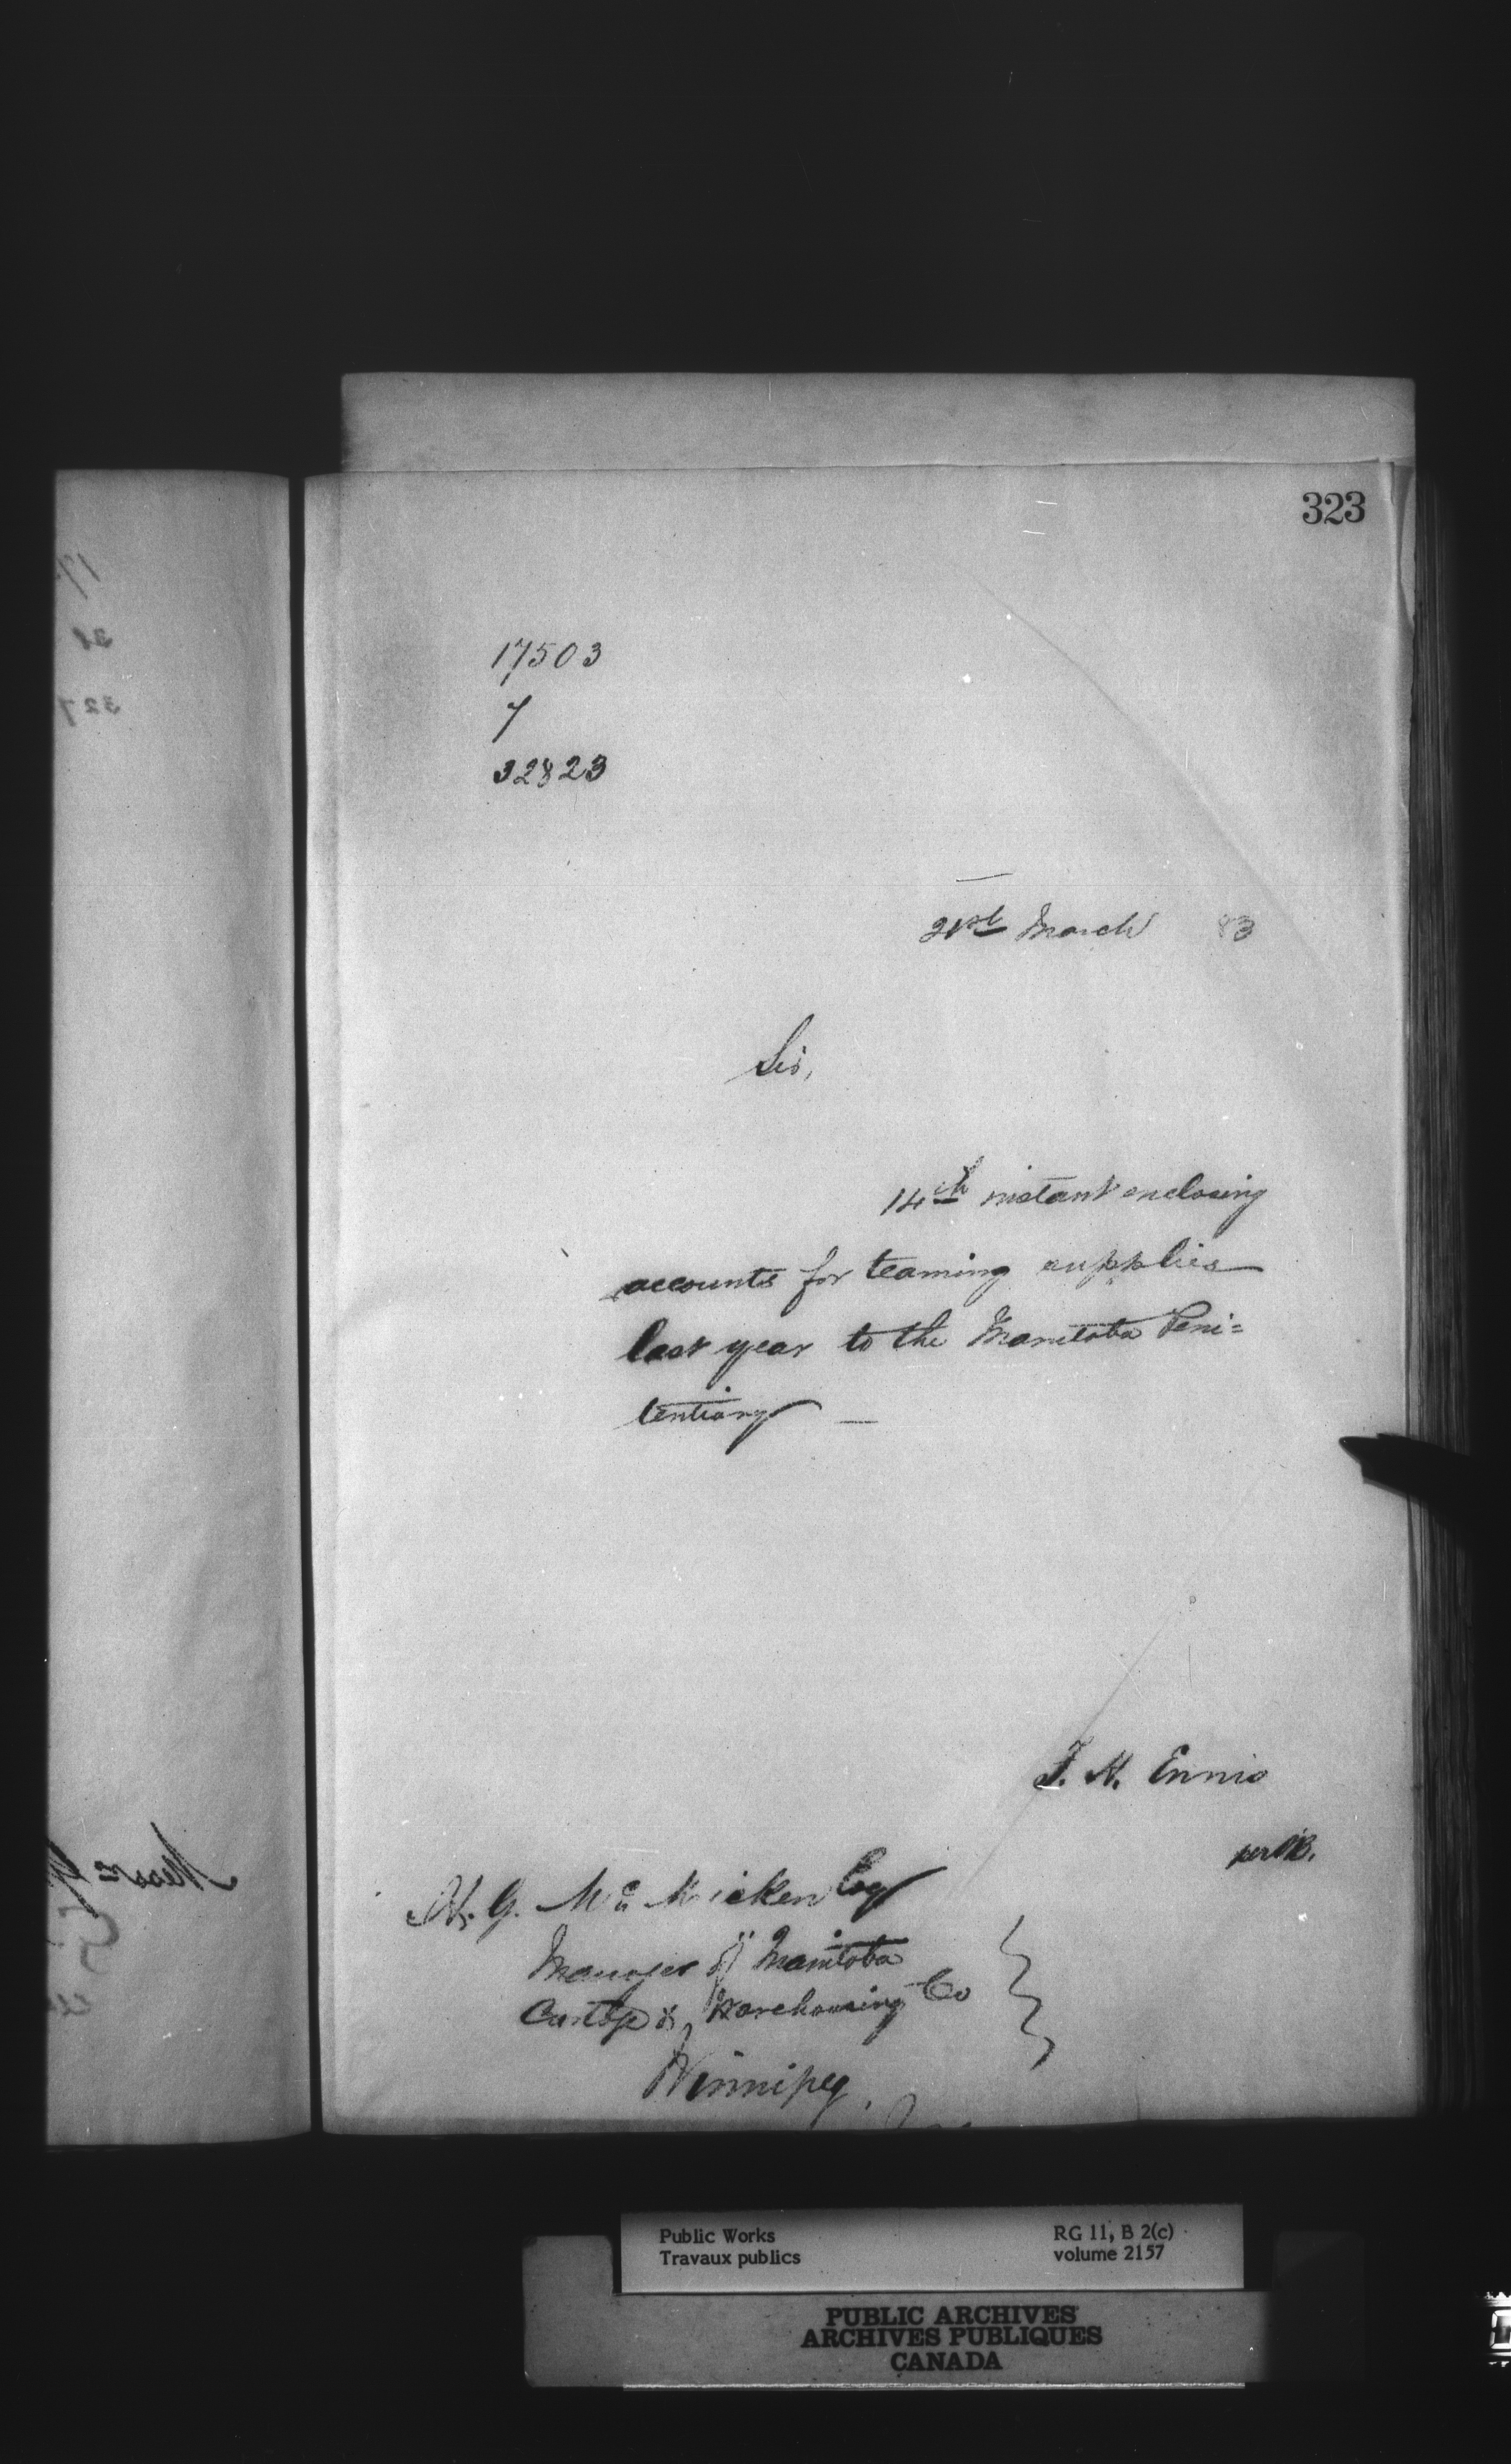 323
17503
7
32823
21st March 83
Sir,
14th instant enclosing
accounts for teaming supplies
last year to the Manitoba Peni=
tentiary —
F. H. Ennis
per
H. G. Mc Micken Esq
Manager of Manitoba
Cartage & Warehousing Co
Winnipeg,
Public Works
Travaux publics
RG 11, B 2(c)
volume 2157
PUBLIC ARCHIVES
ARCHIVES PUBLIQUES
CANADA